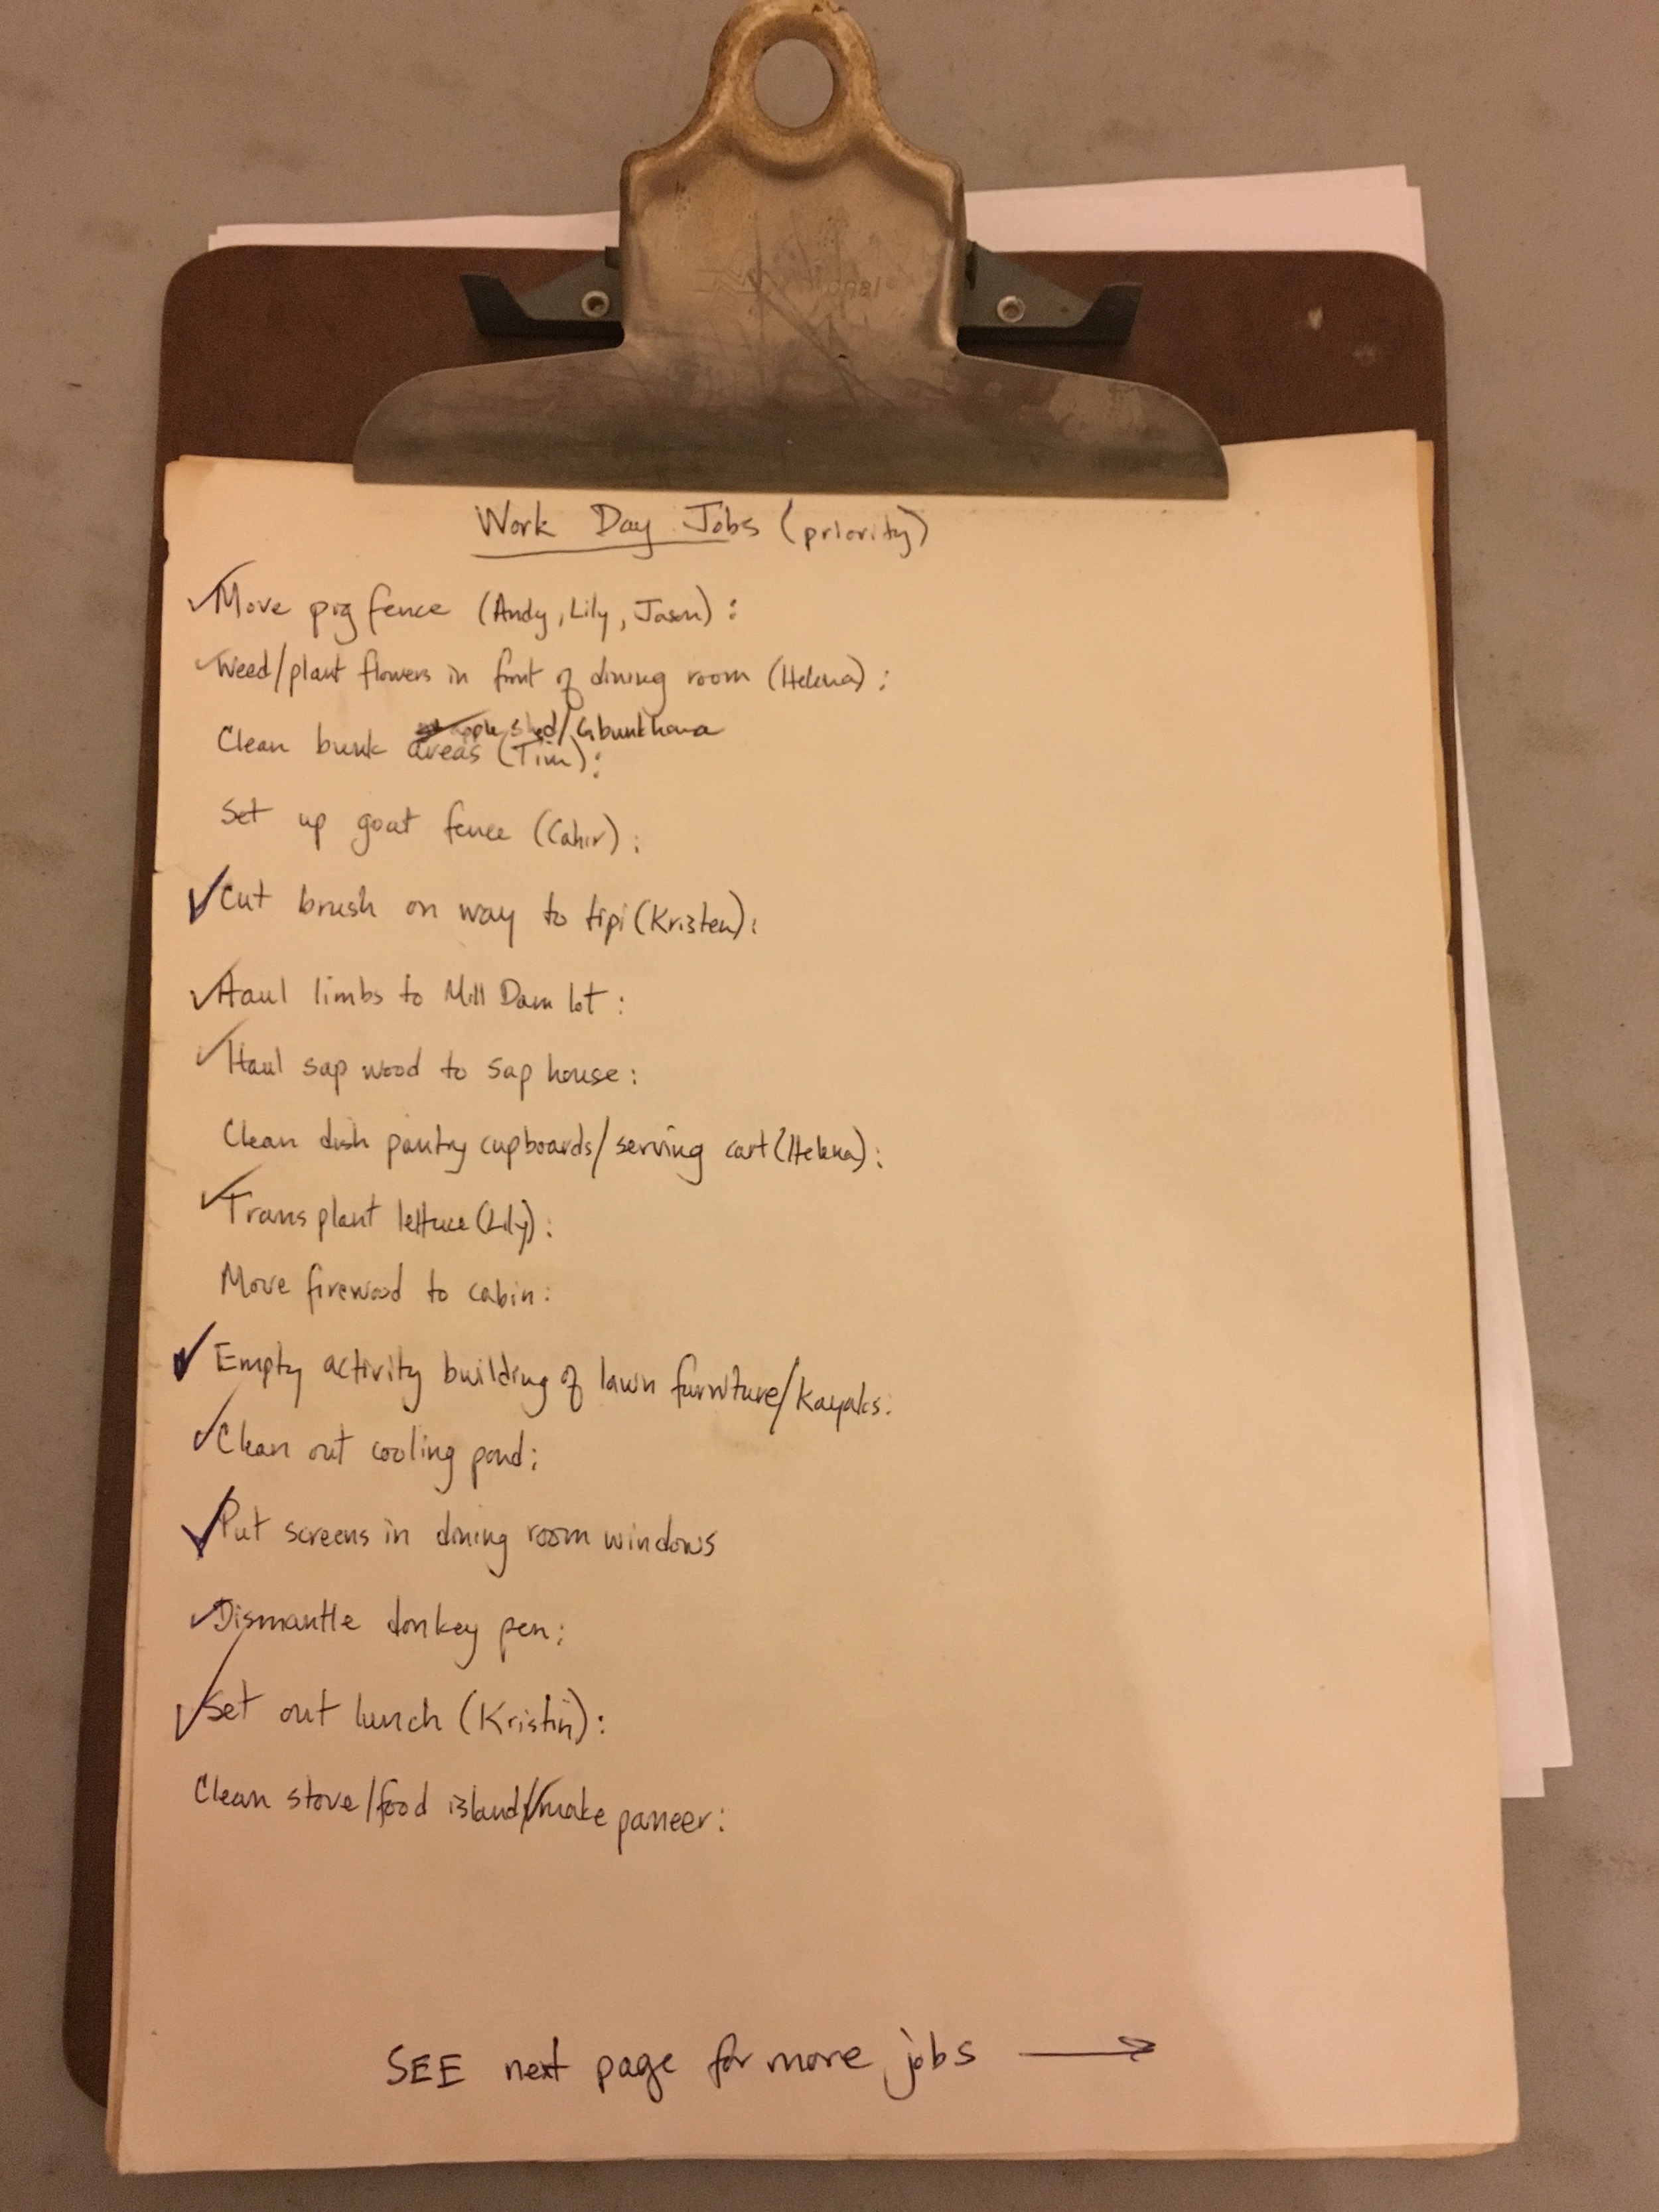 Work Day Jobs (priority)
✓Move pig fence (Andy, Lily, Jason):
✓Weed/plant flowers in front of dining room (Helena):
apple shed/
Clean bunk areas (Tim):
Set up goat fence (Cahir):
✓Cut brush on way to tipi (Kristen):
✓Haul limbs to Mill Dam lot:
✓Haul sap wood to sap house:
Clean dish pantry cupboards/serving cart (Helena):
✓Transplant lettuce (Lily):
Move firewood to cabin:
✓Empty activity building of lawn furniture/kayaks:
✓Clean out cooling pond:
✓Put screens in dining room windows
✓Dismantle donkey pen:
✓Set out lunch (Kristin):
Clean stove/food island/✓make paneer:
SEE next page for more jobs →